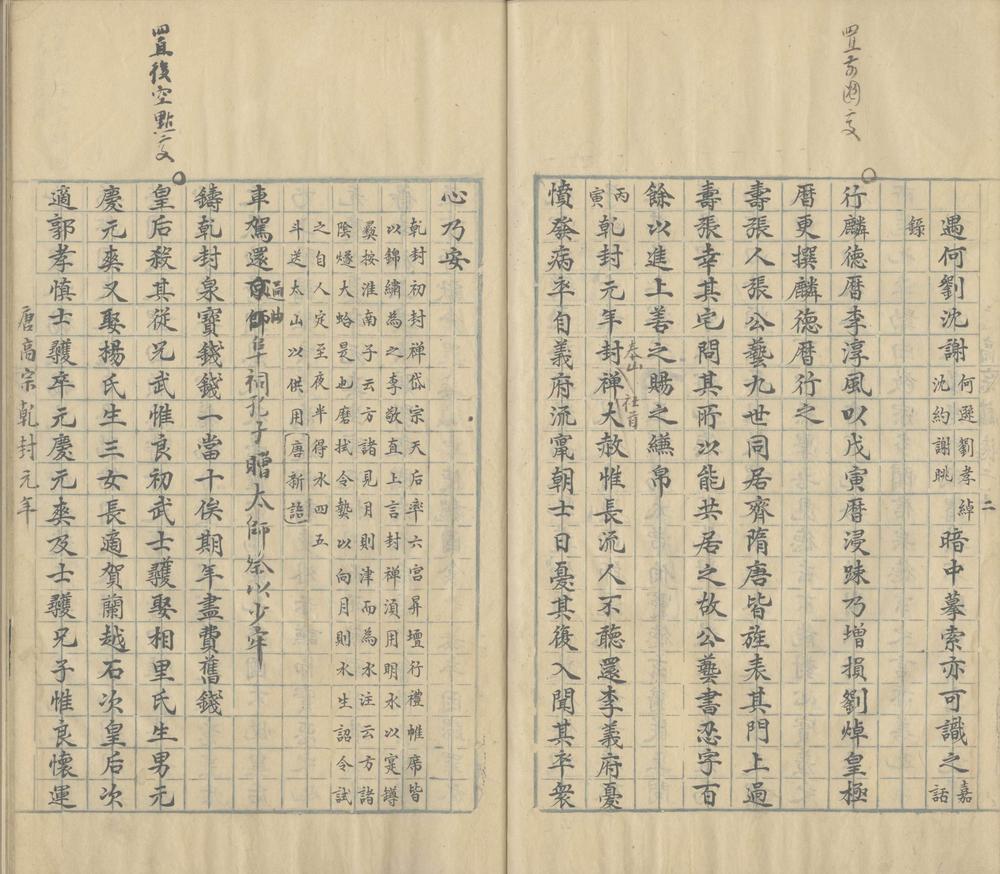 置前圈文
遇何劉沈謝何遜劉孝綽沈約謝眺暗中摹索亦可識之嘉話
錄
二
行麟德曆李淳風以戊寅曆浸踈乃增損劉焯皇極
曆更撰麟德曆行之
壽張人張公藝九世同居齊隋唐皆旌表其門上過
壽張幸其宅問其所以能共居之故公藝書忍字百
餘以進上善之賜之縑帛
丙寅乾封元年封泰山禪社首大赦惟長流人不聽還李義府憂
憤發病卒自義府流竄朝士日憂其復入聞其卒衆
心乃安
乾封初封禅岱宗天后率六宮昇壇行禮帷席皆
以錦繡為之李敬直上言封禅湏用明水以寔罇
彞按淮南子云方諸見月則津而為水注云方諸
陰燧大蛤是也磨拭令熱以向月則水生詔令試
之自人定至夜半得水四五
斗送太山以供用唐新語
車駕還過曲阜祠孔子贈太師祭以少牢
鑄乾封泉寶錢錢一當十俟期年盡費舊錢
置後空點文
皇后殺其從兄武惟良初武士彠娶相里氏生男元
慶元爽又娶楊氏生三女長適賀蘭越石次皇后次
適郭孝慎士彠卒元慶元爽及士彠兄子惟良懷運
唐高宗乾封元年